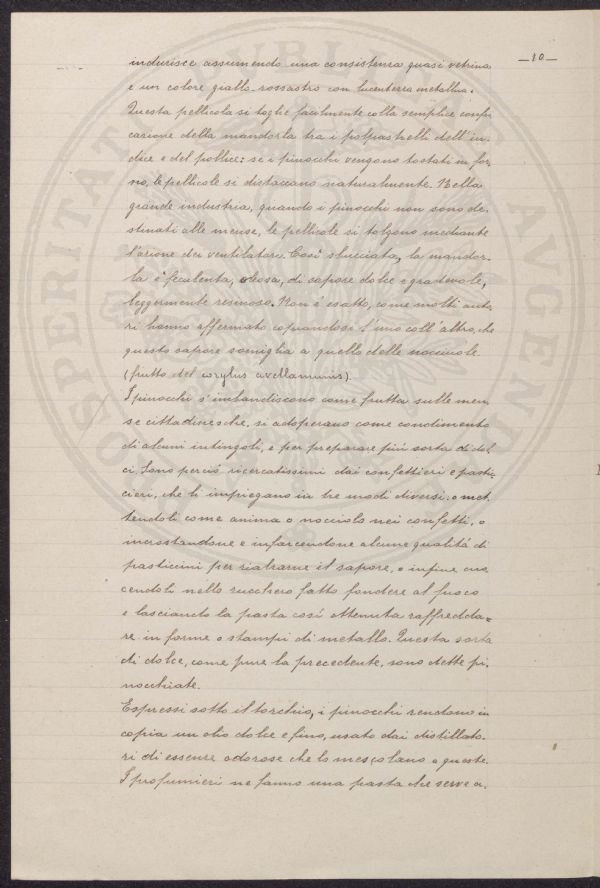 —10—
indurisce assumendo una consistenza quasi vetrina
e un colore giallo-rossastro con lucentezza metallica.
Questa pellicola si toglie facilmente colla semplice confri
cazione della mandorla tra i polpastrelli dell'in-
dice e del pollice: se i pinocchi vengono tostati in for
no, le pellicole si distaccano naturalmente. Nella
grande industria, quando i pinocchi non sono de-
stinati alle mense, le pellicole si tolgono mediante
l'azione dei ventilatori. Così sbucciata, la mandor-
la è feculenta, oleosa, di sapore dolce e gradevole,
leggermente resinoso. Non è esatto, come molti auto-
ri hanno affermato copiandosi l'uno coll'altro, che
questo sapore somiglia a quello delle nocciuole
(frutto del corylus avellanunis).
I pinocchi s'imbandiscono come frutta sulle men
se cittadinesche, si adoperano come condimento
di alcuni intingoli, e per preparare più sorta di dol
ci. Sono perciò ricercatissimi dai confettieri e pastic-
cieri, che li impiegano in tre modi diversi: o met
tendoli come anima o nocciolo nei confetti, o
incrostandone e infarcendone alcune qualità di
pasticcini per rialzarne il sapore, o infine cuo
cendoli nello zucchero fatto fondere al fuoco
e lasciando la pasta così ottenuta raffredda=
re in forme o stampi di metallo. Questa sorta
di dolce, come pure la precedente, sono dette pi-
nocchiate.
Espressi sotto il torchio, i pinocchi rendono in
copia un olio dolce e fino, usato dai distillato-
ri di essenze odorose che lo mescolano a queste.
I profumieri ne fanno una pasta che serve a
PROSPERITATI PUBLICAE AVGENDAE